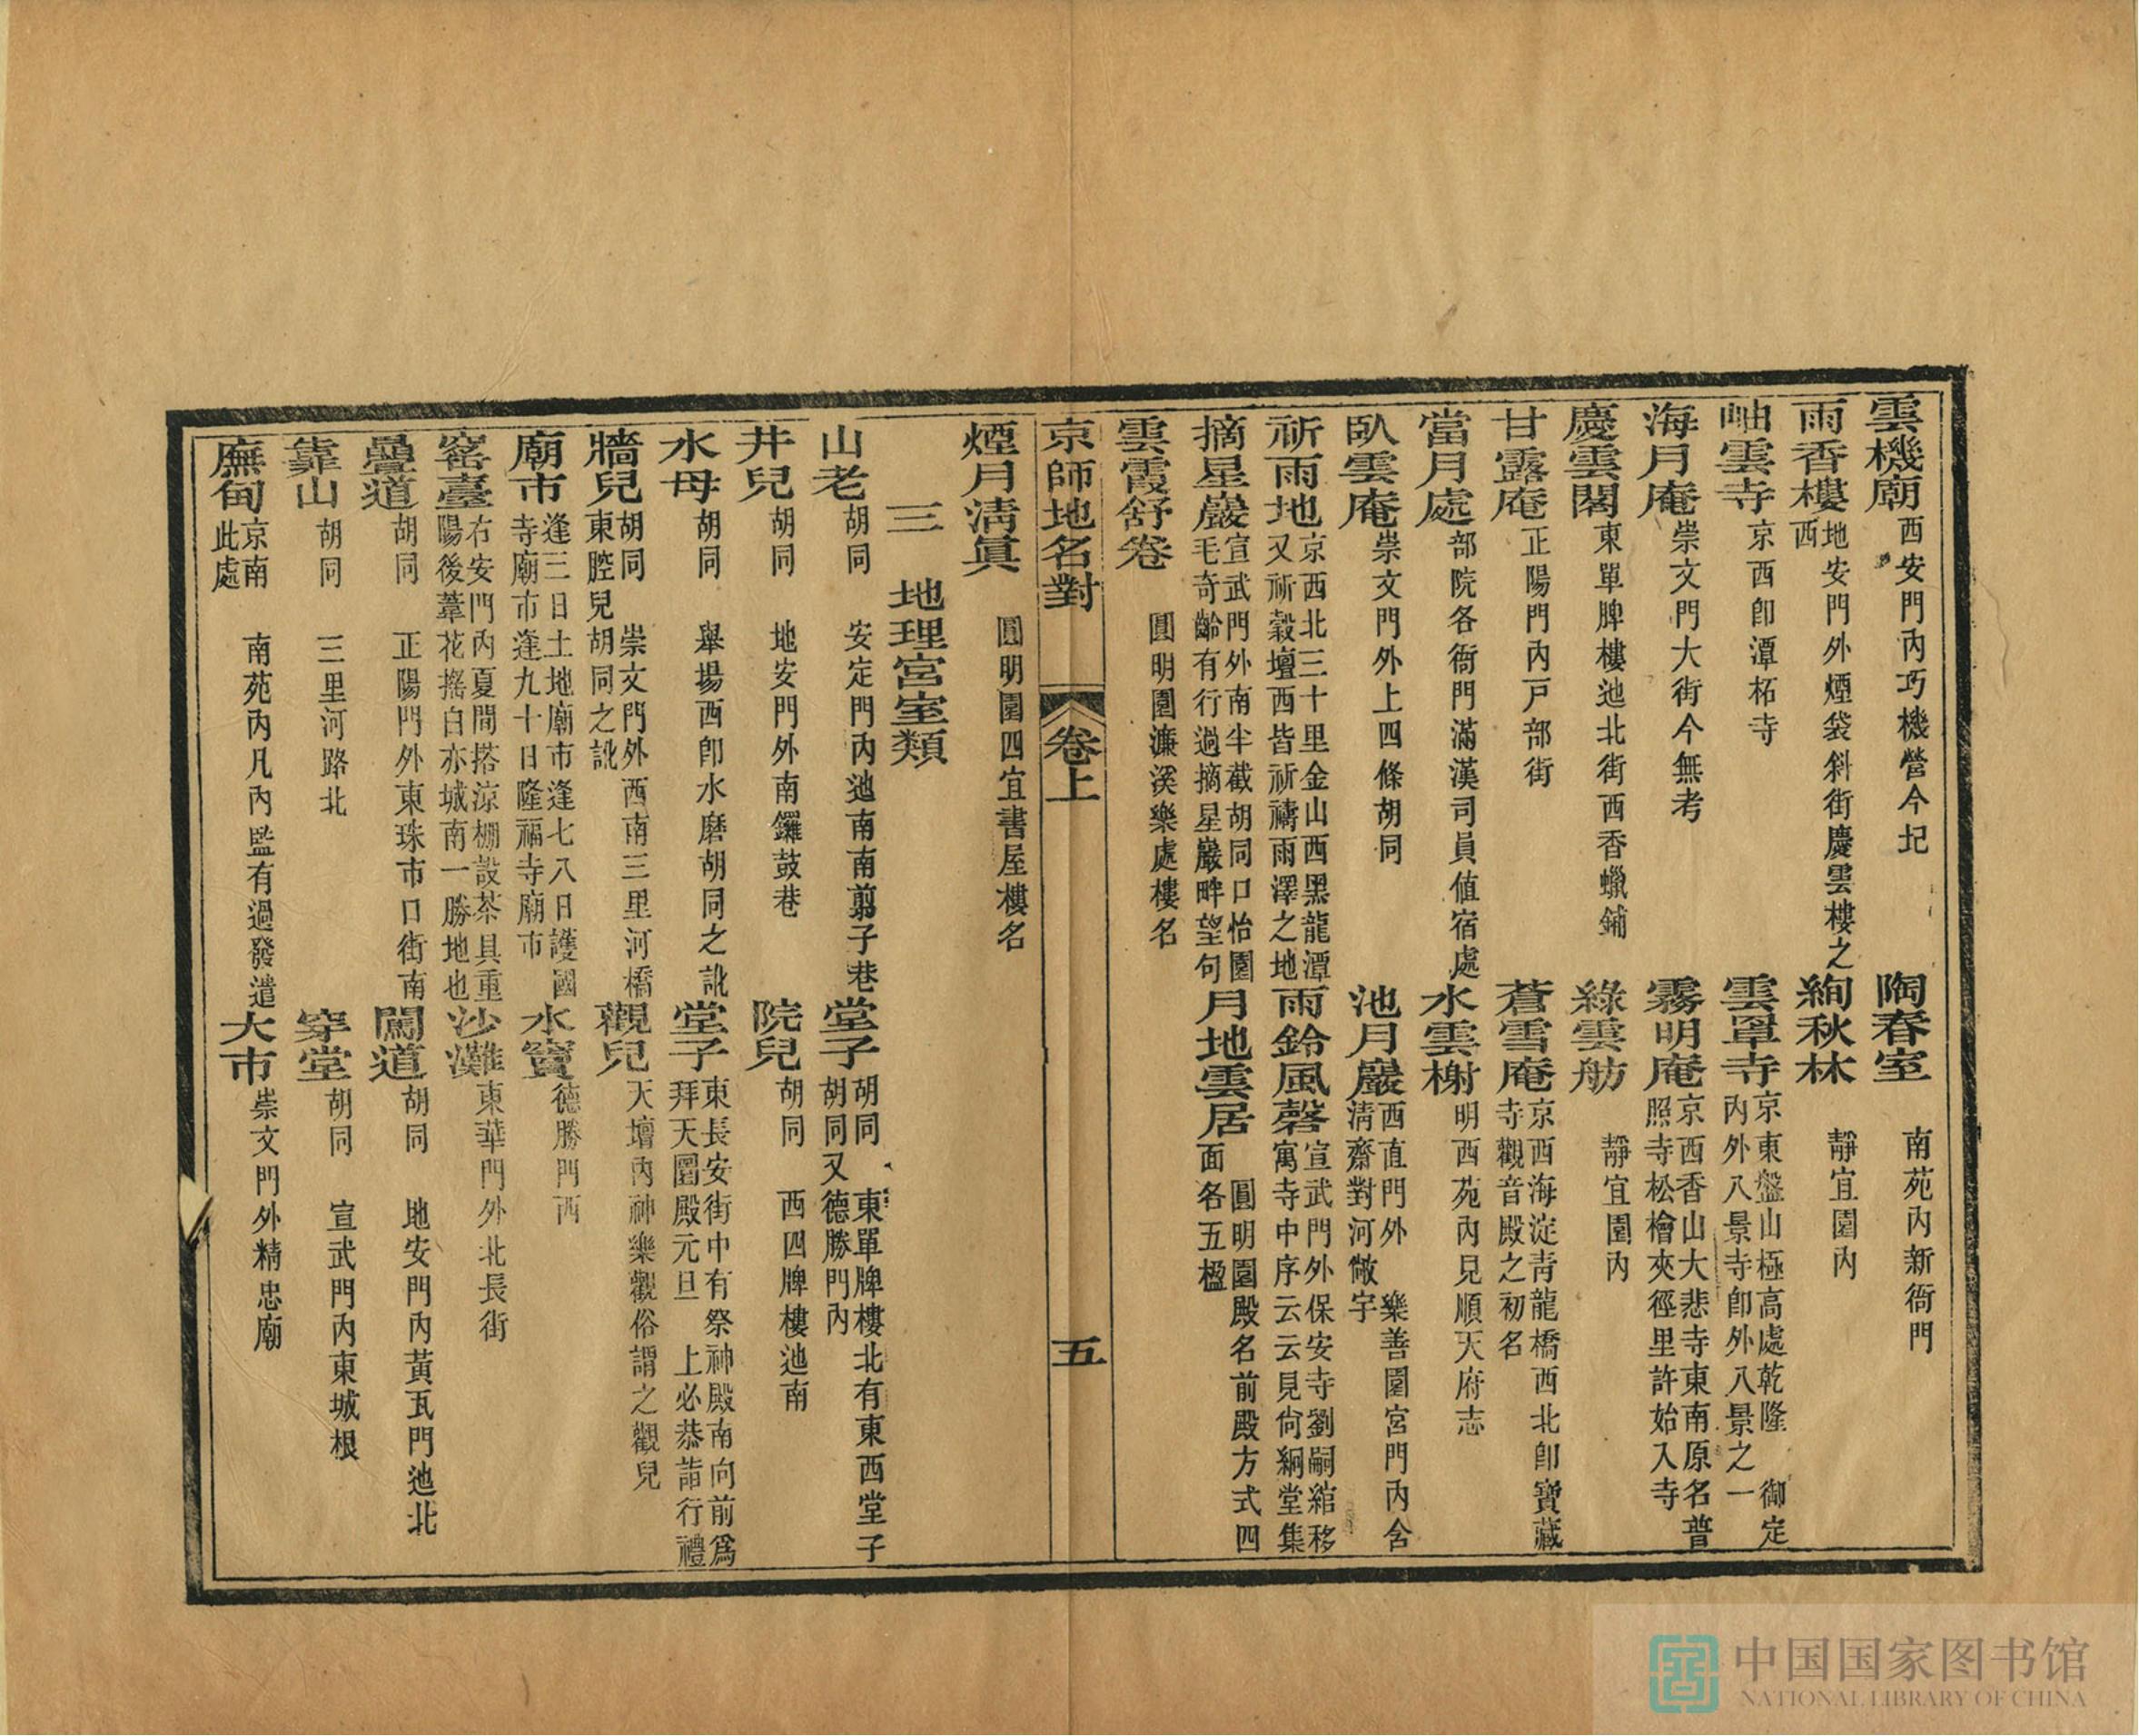 雲機廟 西安門內巧機營今圮 陶春室 南苑內新衙門
雨香樓 地安門外煙袋斜街慶雲樓之西 絢秋林 靜宜園內
岫雲寺 京西卽潭柘寺 雲罩寺 京東盤山極高處乾隆 御定內外八景寺卽外八景之一
海月庵 崇文門大街今無考 霧明庵 京西香山大悲寺東南原名普照寺松檜夾徑里許始入寺
慶雲閣 東單牌樓迤北街西香蠟鋪 綠雲舫 靜宜園內
甘露庵 正陽門內戶部街 蒼雪庵 京西海淀青龍橋西北卽寶藏寺觀音殿之初名
當月處 部院各衙門滿漢司員値宿處 水雲榭 明西苑內見順天府志
臥雲庵 崇文門外上四條胡同 池月巖 西直門外 樂善園宮門內含淸齋對河敞宇
祈雨地 京西北三十里金山西黑龍潭又祈穀壇西皆祈禱雨澤之地 雨鈴風磬 宣武門外保安寺劉嗣綰移寓寺中序云云見尙絅堂集
摘星巖 宣武門外南半截胡同口怡園毛奇齡有行過摘星巖畔望句 月地雲居 圓明園殿名前殿方式四面各五楹
雲霞舒卷 圓明園濂溪樂處樓名
京師地名對 卷上 五
煙月淸眞 圓明園四宜書屋樓名
三 地理宮室類
山老 胡同 安定門內迤南南剪子巷 堂子 胡同 東單牌樓北有東西堂子胡同又德勝門內
井兒 胡同 地安門外南鑼鼓巷 院兒 胡同 西四牌樓迤南
水母 胡同 舉場西卽水磨胡同之訛 堂子 東長安街中有祭神殿南向前爲拜天圜殿元旦 上必恭詣行禮
牆兒 胡同 崇文門外西南三里河橋東腔兒胡同之訛 觀兒 天壇內神樂觀俗謂之觀兒
廟市 逢三日土地廟市逢七八日護國寺廟市逢九十日隆福寺廟市 水竇 德勝門西
窰臺 右安門內夏間搭涼棚設茶具重陽後葦花搖白亦城南一勝地也 沙灘 東華門外北長街
疊道 胡同 正陽門外東珠市口街南 闖道 胡同 地安門內黃瓦門迤北
靠山 胡同 三里河路北 穿堂 胡同 宣武門內東城根
廡甸 京南 南苑內凡內監有過發遣此處 大市 崇文門外精忠廟
中国国家图书馆
NATIONAL LIBRARY OF CHINA